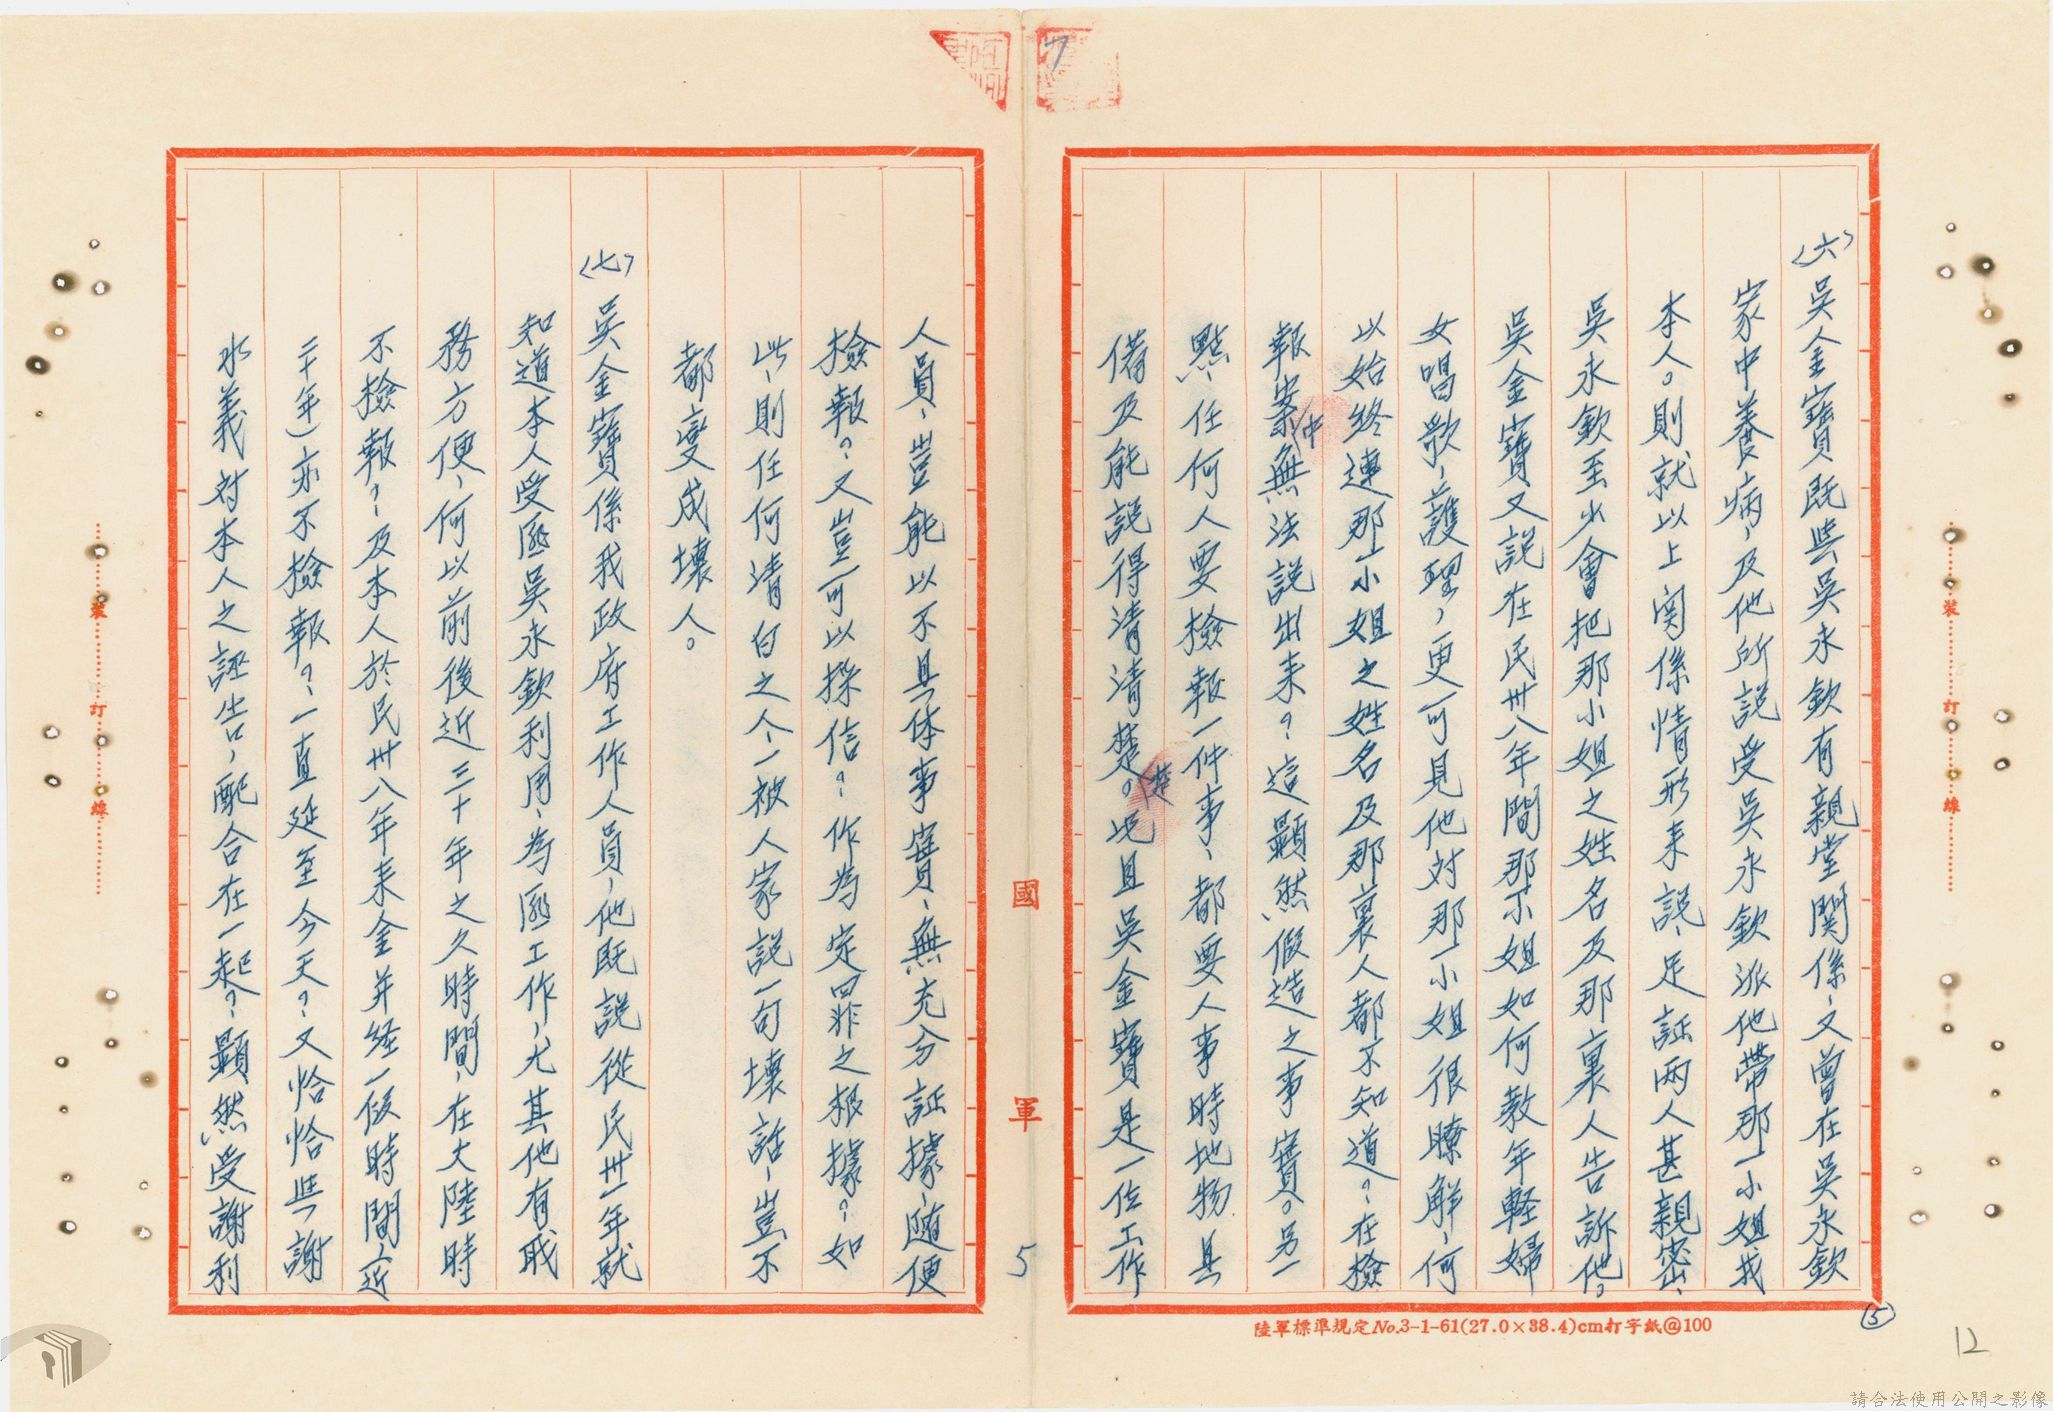 〈六〉吳金寶既與吳永欽有親堂関係、又曾在吳永欽
家中養病、及他所説受吳永欽派他帶那一小姐找
本人。則就以上関係情形来説、足証兩人甚親密、
吳永欽至少會把那小姐之姓名及那裏人告訴他。
吳金寶又説在民卅八年間那小姐如何教年軽婦
女唱歌、護理，更可見他対那一小姐很瞭解、何
以始終連那一小姐之姓名及那裏人都不知道？在檢
報案中無法説出来？這顯然假造之事實。另一
點、任何人要檢報一件事、都要人事時地物具
備及能説得清清楚楚。况且吳金寶是一位工作
人員、豈能以不具体事實、無充分証據、随便
檢報？又豈可以採信？作為定罪之根據？如
此、則任何清白之人、一被人家説一句壞話、豈不
都變成壞人。
〈七〉吳金寶係我政府工作人員，他既説從民卅一年就
知道本人受匪吳永欽利用、為匪工作，尤其他有職
務方便、何以前後近三十年之久時間，在大陸時
不檢報？及本人於民卅八年来金并経一段時間（近
二十年）亦不檢報？一直延至今天？又恰恰與謝
水義対本人之誣告，配合在一起？顯然受謝利
國軍
5
陸軍標準規定No.3-1-61(27.0×38.4)cm打字紙@100
⑤
12
7
裝 訂 線
裝 訂 線
請合法使用公開之影像